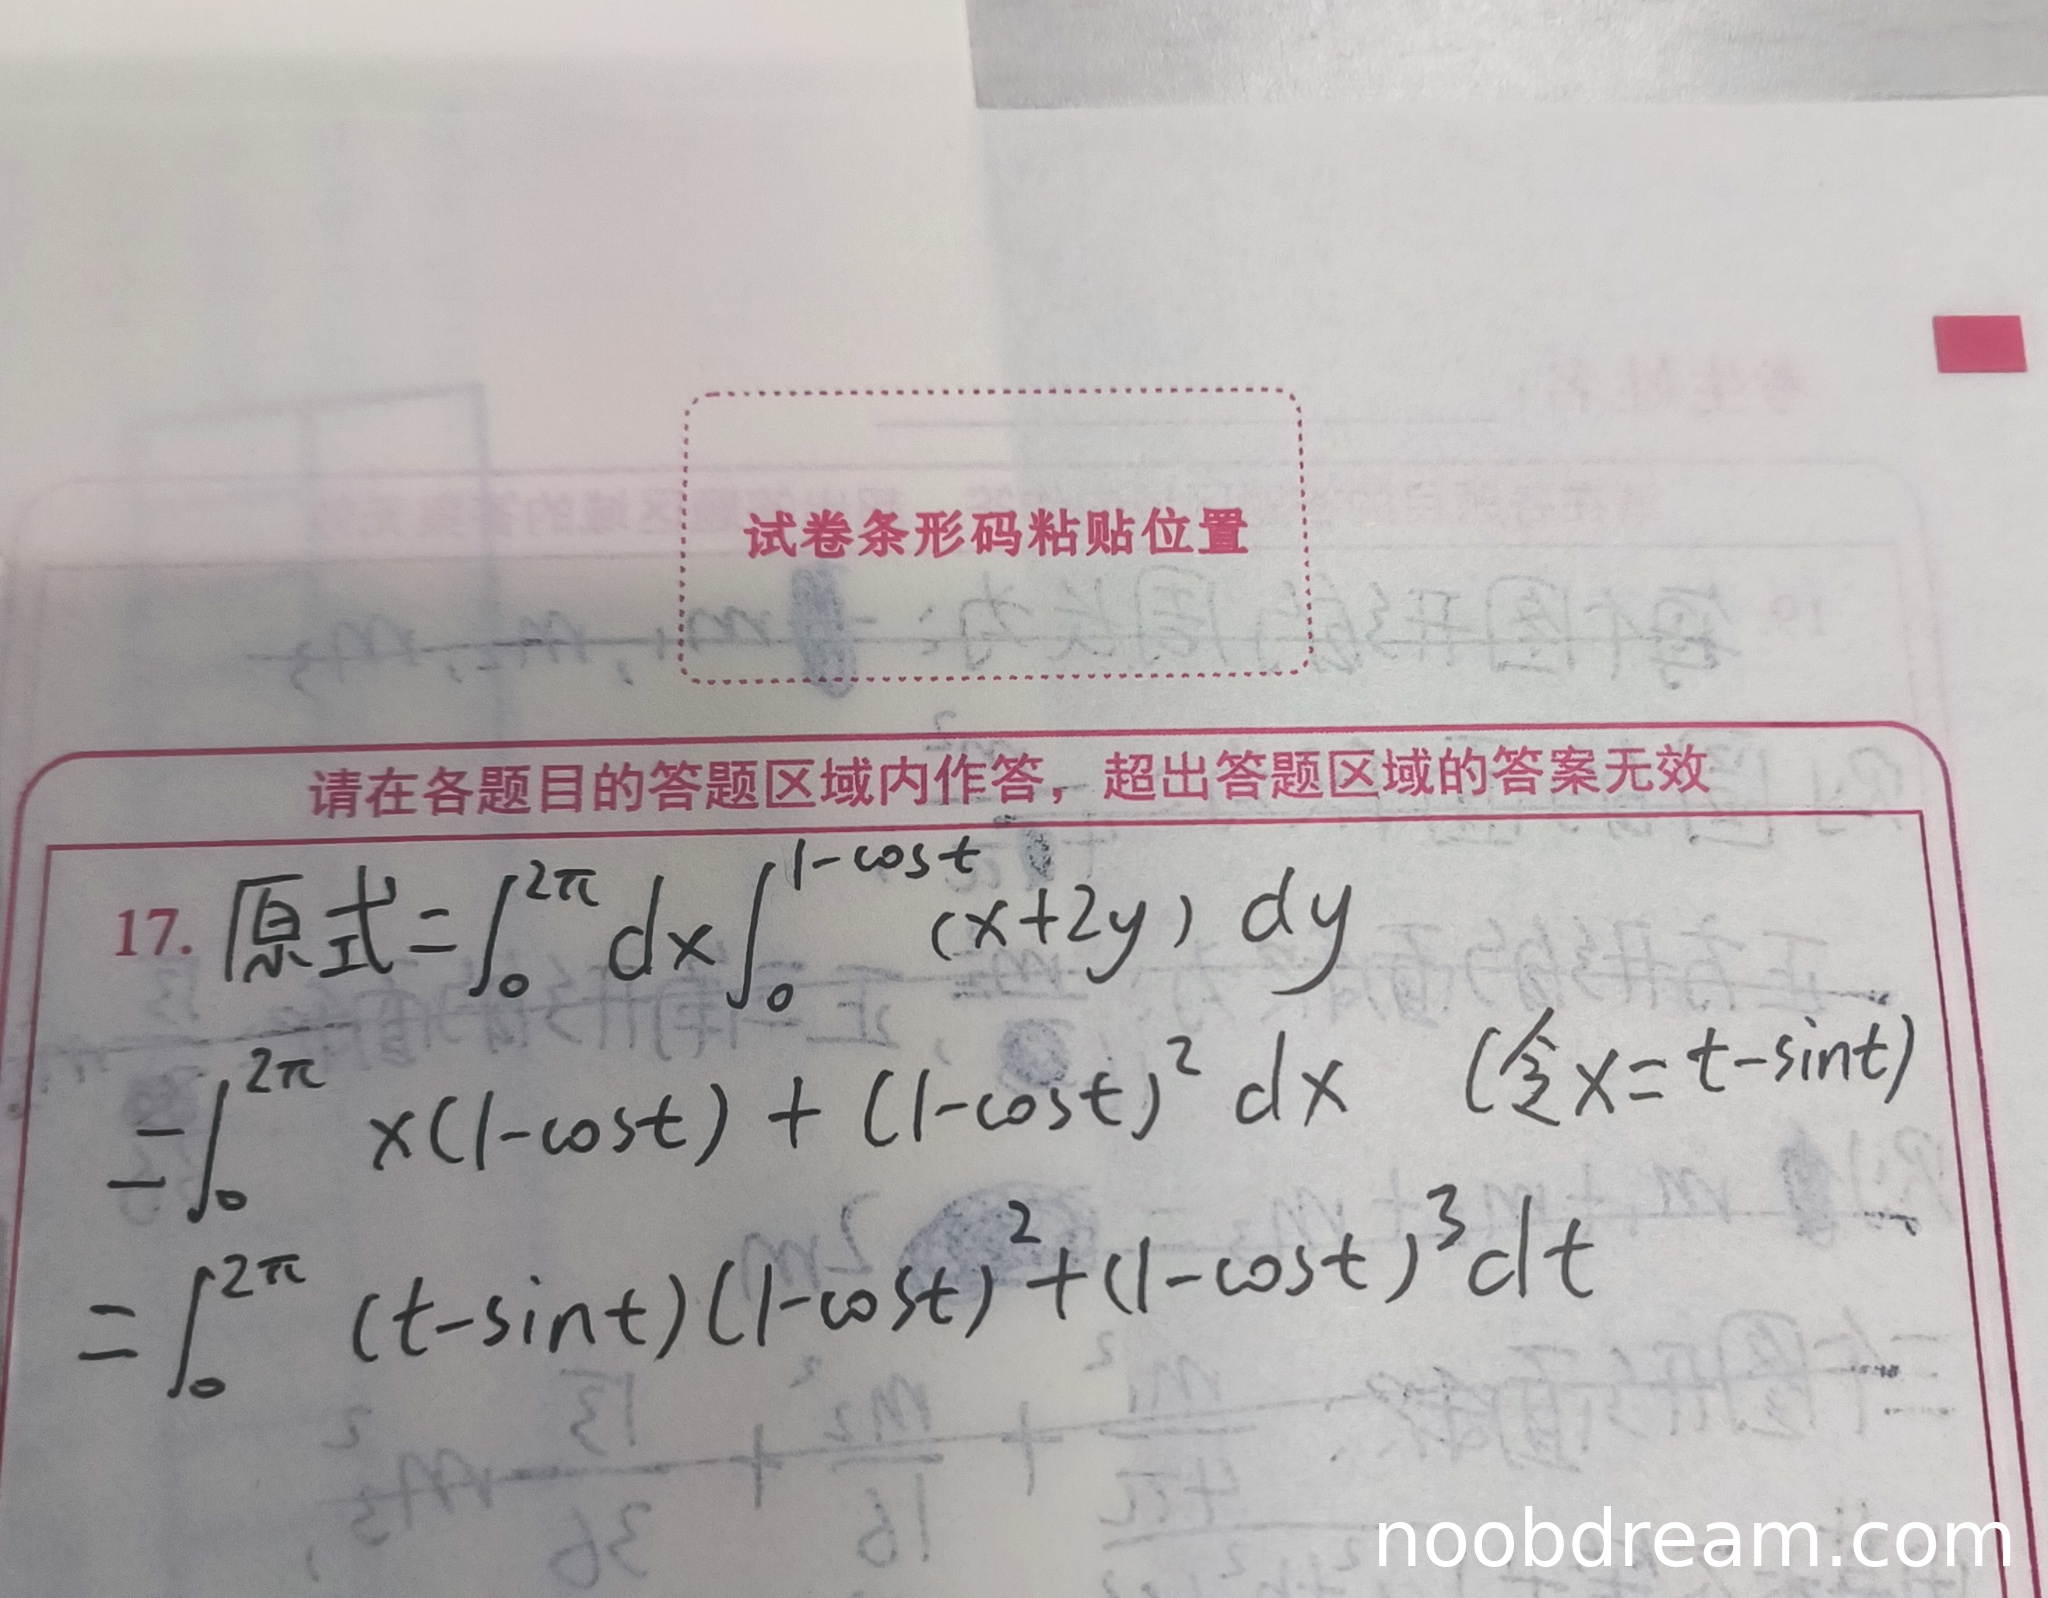 试卷条形码粘贴位置
请在各题目的答题区域内作答，超出答题区域的答案无效
17. 原式=∫₀^{2π} dx ∫₀^{1-cost} (x+2y) dy
=∫₀^{2π} x(1-cost) + (1-cost)² dx (令x=t-sint)
=∫₀^{2π} (t-sint)(1-cost)²+(1-cost)³dt
noobdream.com